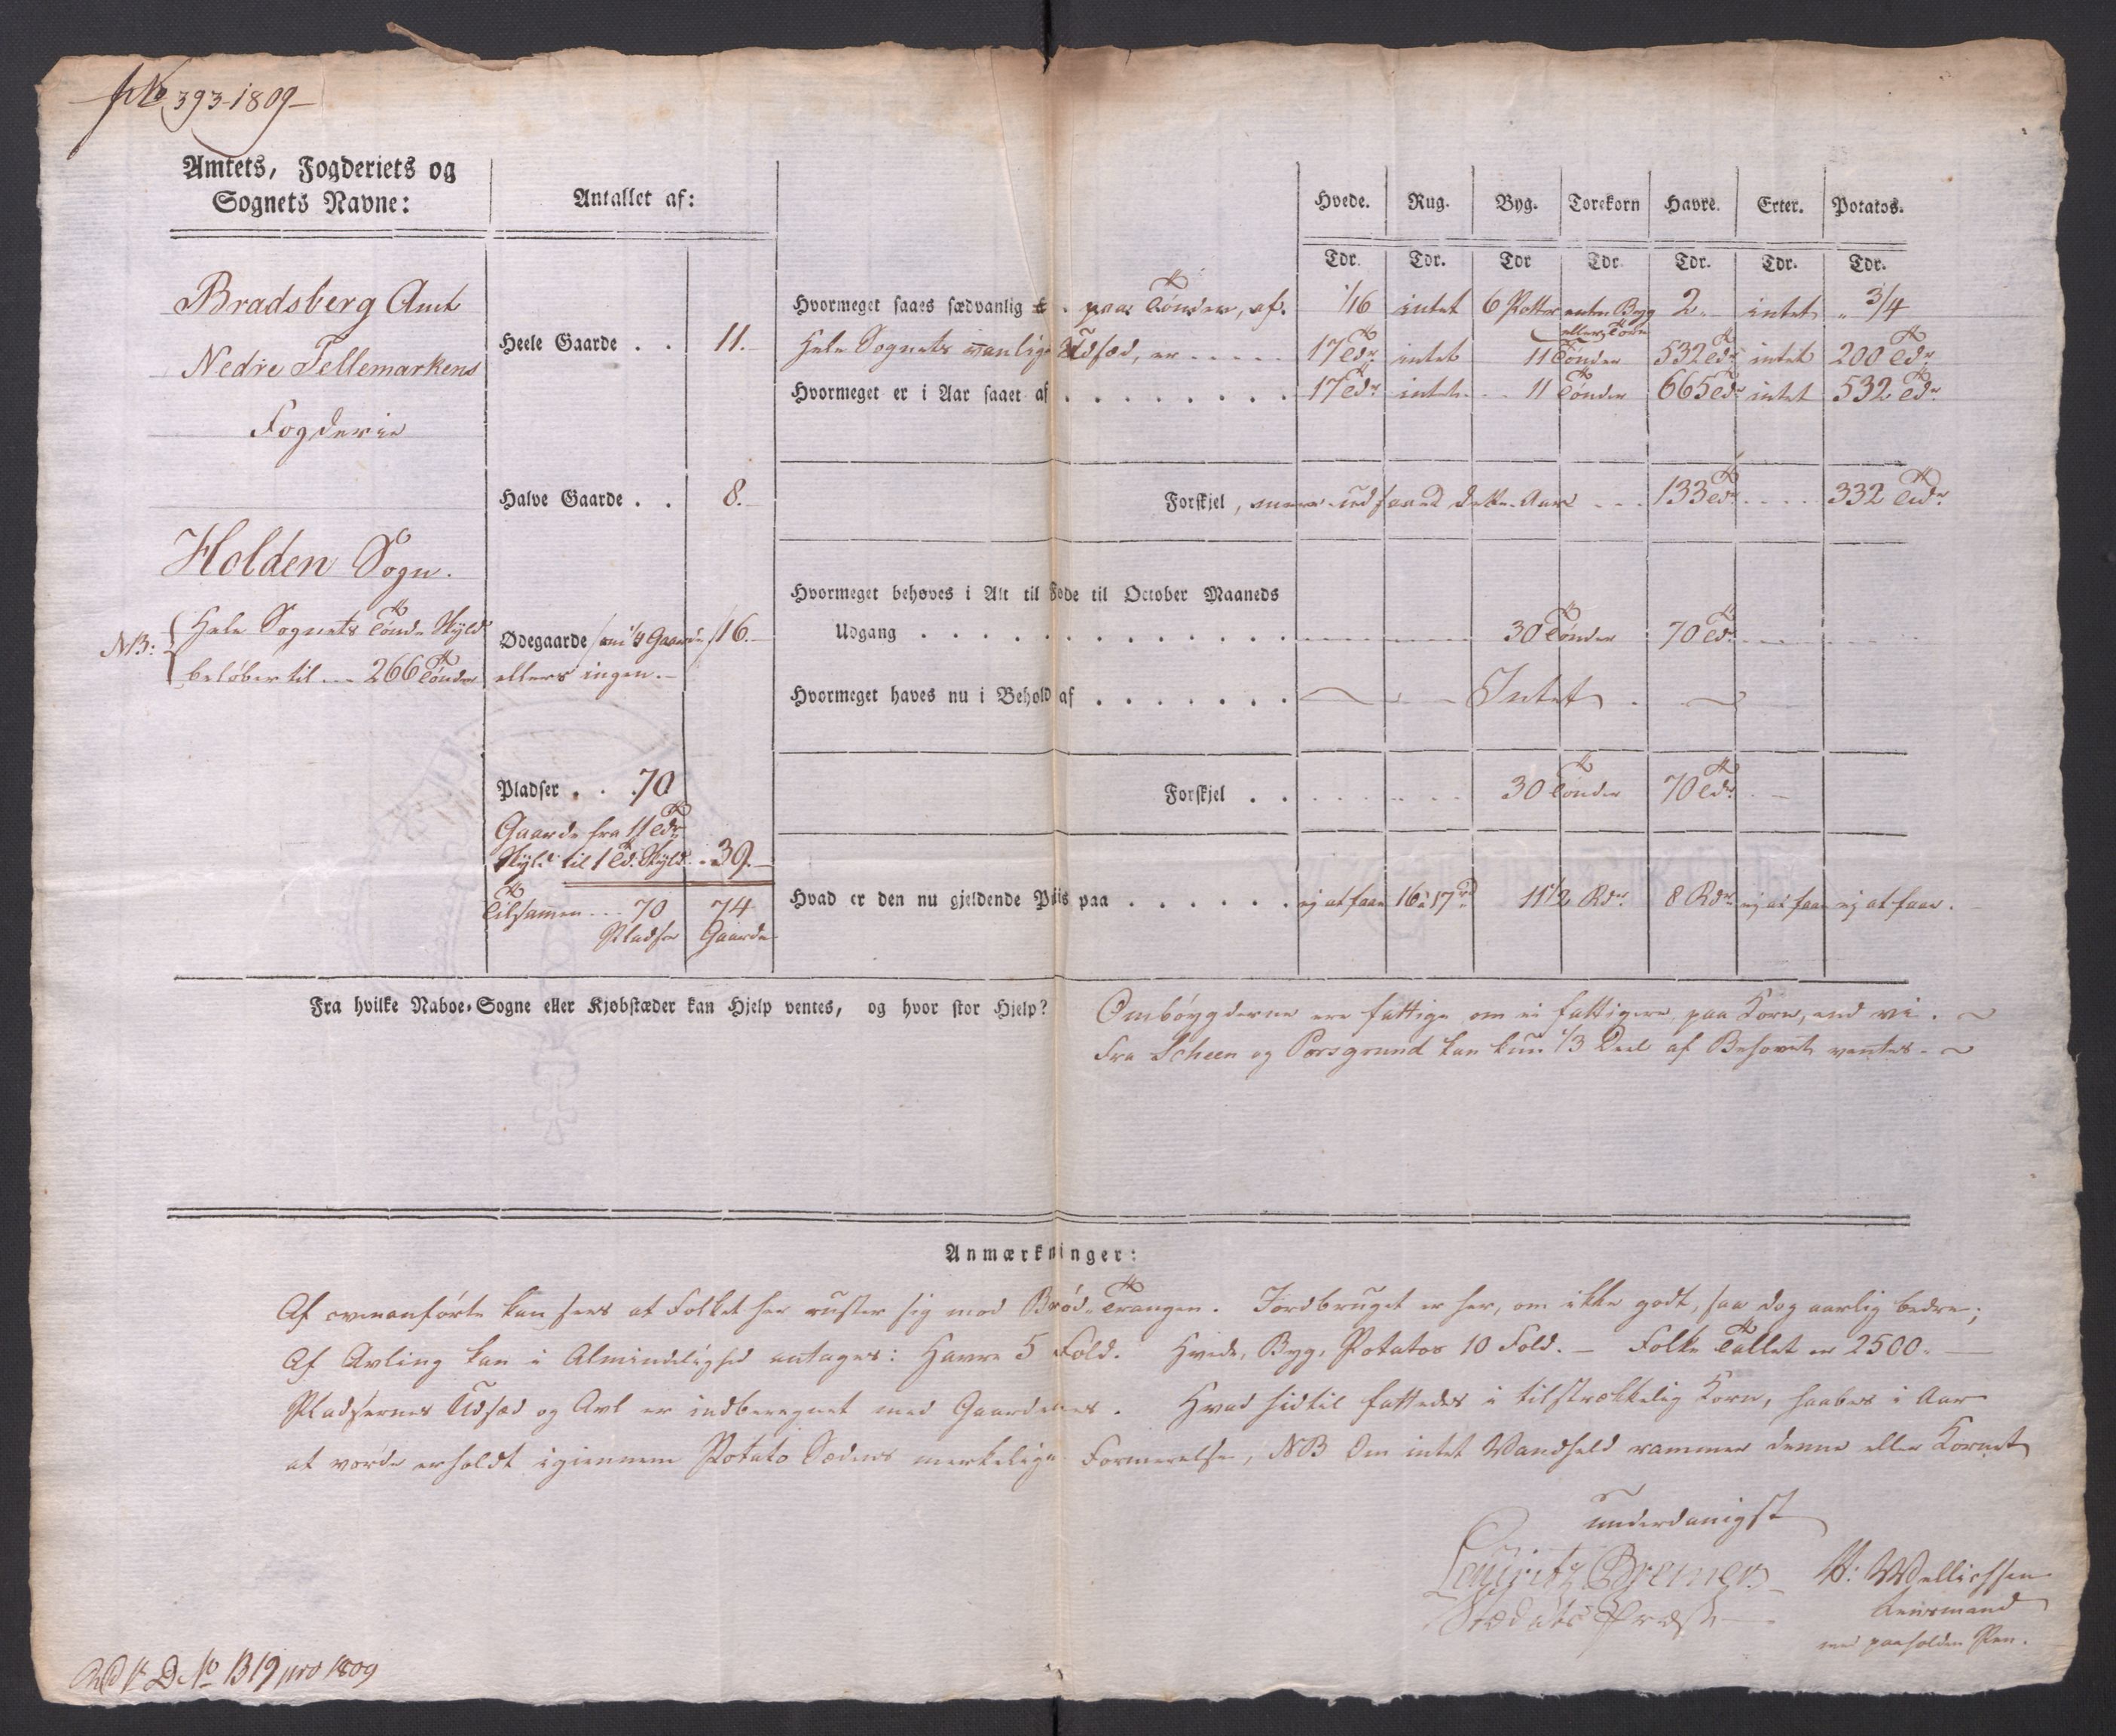 No 393-1809
Amtets, Fogderiets og
Sognets Navne:
Antallet af:
Hvede. Rug. Byg. Torekorn Havre. Erter. Potatos.
Tdr. Tdr. Tdr Tdr. Tdr. Tdr. Tdr.
Bradsberg Amt
Nedre Tellemarkens
Fogderie
Holden Sogn.
NB: Hele Sognets Tønde Skyld
beløber til --- 266 Tønder
Heele Gaarde . . 11.
Halve Gaarde . . 8.
Ødegaarde som 1/4 Gaarde 16.
ellers ingen.
Pladser . . . 70
Gaarde fra 11 Tdr
Skyld til 1 Td. Skyld . . 39.
Tilsamen --- 70 74
Pladse Gaarde
Hvormeget saaes sædvanlig . paa Tønden, af. 1/16 intet 6 Potter enten Byg 2 intet 3/4
eller Tore
Hele Sognets vanlige Udsæd, er ----- 17 Tdr intet 11 Tønder 532 Tdr intet 200 Tdr
Hvormeget er i Aar saaet af . . . . . . . . 17 Tdr intet 11 Tønder 665 Tdr intet 532 Tdr
Forskjel, mere udsaaed dette Aar --- 133 Tdr 332 Tdr
Hvormeget behøves i Alt til Føde til October Maaneds
Udgang . . . . . . . . . . . . . 30 Tønder 70 Tdr
Hvormeget haves nu i Behold af . . . . . . . Intet
Forskjel . . 30 Tønder 70 Tdr
Hvad er den nu gjeldende Priis paa . . . . . . ej at faae 16 à 17 rd 11 1/2 Rdr 8 Rdr ej at faae ej at faae.
Fra hvilke Naboe-Sogne eller Kjøbstæder kan Hjelp ventes, og hvor stor Hjelp? Ombøygderne ere fattige om ei fattigere, paa Korn, end vi.
Fra Scheen og Porsgrund kan kun 1/3 Deel af Behovet ventes.
Anmærkninger:
Af ovenanførte kan sees at Folket her ruster sig mod Brød-Trangen. Jordbruget er her, om ikke godt, saa dog aarlig bedre;
Af Avling kan i Almindelighed antages: Havre 5 Fold. Hvede, Byg, Potatos 10 Fold. — Folke Tallet er 2500.
Pladsernes Udsæd og Avl er indberegnet med Gaardenes. Hvad hidtil fattedes i tilstrækkelig Korn, haabes i Aar
at vorde erholdt igiennem Potato Sædens merkelige Formerelse, NB Om intet Vandheld rammer denne eller Kornet
underdanigst
Bremer
Præst
Wellichsen
Lensmand
med paaholden Pen.
No 1319 pro 1809